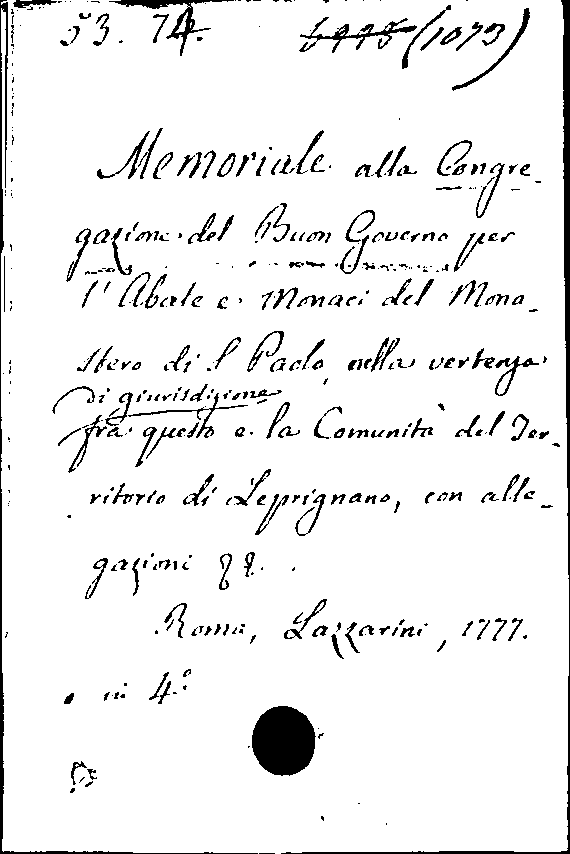 53. 74. (1073)
Memoriale alla Congre-
gazione del Buon Governo per
l'Abate e Monaci del Mona-
stero di S Paolo, nella vertenza
di giurisdizione
fra questo e la Comunità del Ter-
ritorio di Leprignano, con alle-
gazioni
Roma, Lazzarini, 1777.
in 4.°